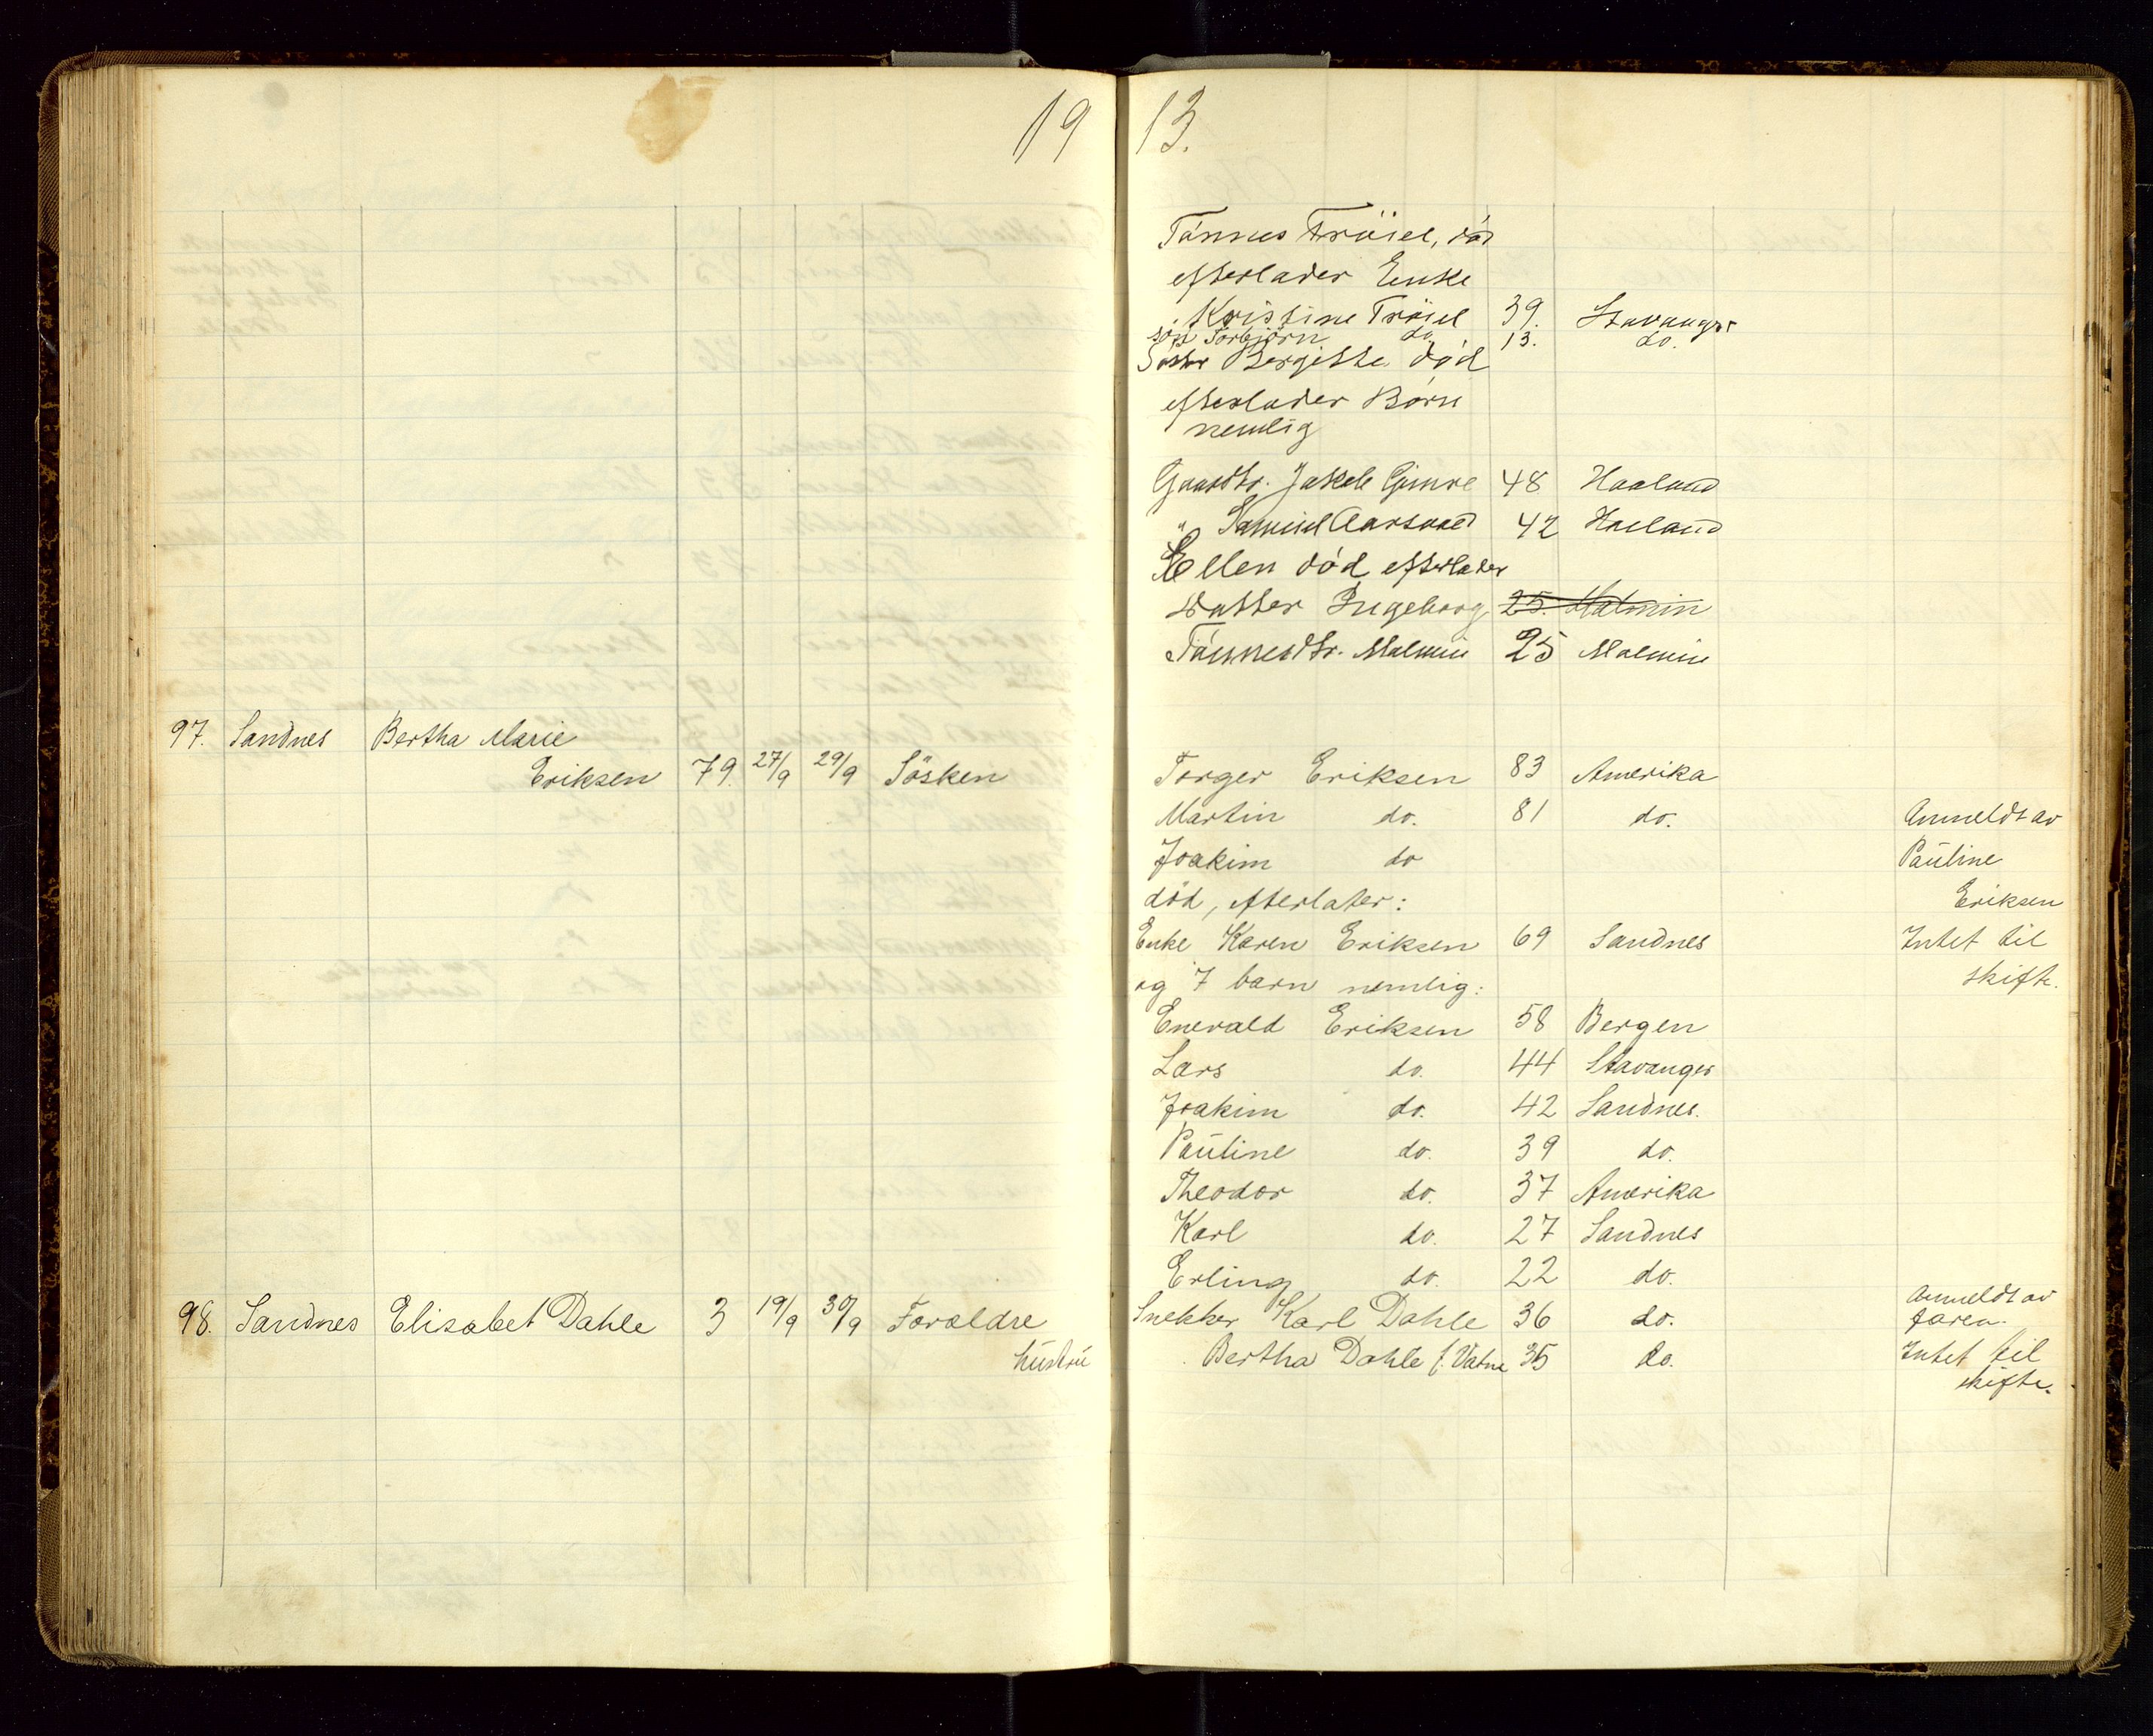 19 13.
Tönnes Tröiel, död
efterlader Enke
Kristine Tröiel 39. Stavanger
søn Torbjörn do 13. do.
Søster Bergitte död
efterlader Børn
nemlig
Gaardbr. Jakob Gimre 48 Haaland
" Samuel Aarsvoll 42 Haaland
Ellen död efterlader
Datter Ingeborg 25. Malmin
Tönnesdtr. Malmin 25 Malmin
97. Sandnes Bertha Marie
Eriksen 79. 27/9 29/9 Søsken Torger Eriksen 83 Amerika
Martin do. 81 do. Anmeldt av
Joakim do Pauline
död, efterlater: Eriksen
Enke Karen Eriksen 69 Sandnes Intet til
og 7 barn nemlig: skifte.
Enevald Eriksen 58 Bergen
Lars do. 44 Stavanger
Joakim do. 42 Sandnes.
Pauline do. 39 do.
Theodor do. 37 Amerika
Karl do. 27 Sandnes
Erling do. 22 do.
98. Sandnes Elisabet Dahle 3 19/9 30/9 Foraldre Snekker Karl Dahle 36 do. Anmeldt av
faren.
hustru Bertha Dahle f. Vatne 35 do. Intet til
skifte.